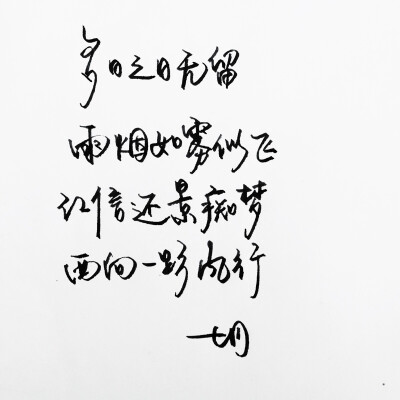 今日之日无留
雨烟如雾似飞
江信还景痴梦
西向一影风行
七月